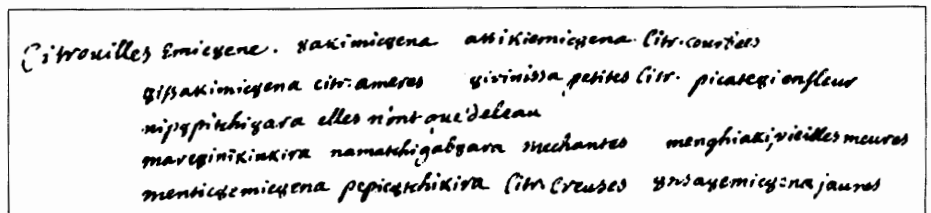 Citrouilles Emicȣene. ȣakimicȣena assikiemicȣena. Citr. courtes
ȣissakimicȣena citr. ameres ȣirinissa petites Citr. picateȣi en fleur
nipȣpitchiȣara elles n'ont que de l'eau
mareȣinikinkira namatchigabȣara mechantes menghiaki, vieilles meures
menticȣemicȣena pepicȣtchikira Citr. Creuses ȣnsaȣemicȣena jaunes